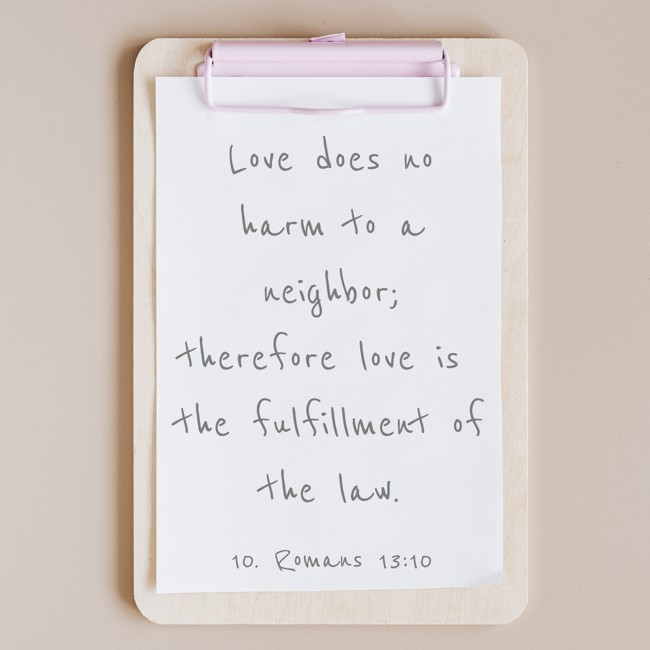 Love does no
harm to a
neighbor;
therefore love is
the fulfillment of
the law.
10. Romans 13:10